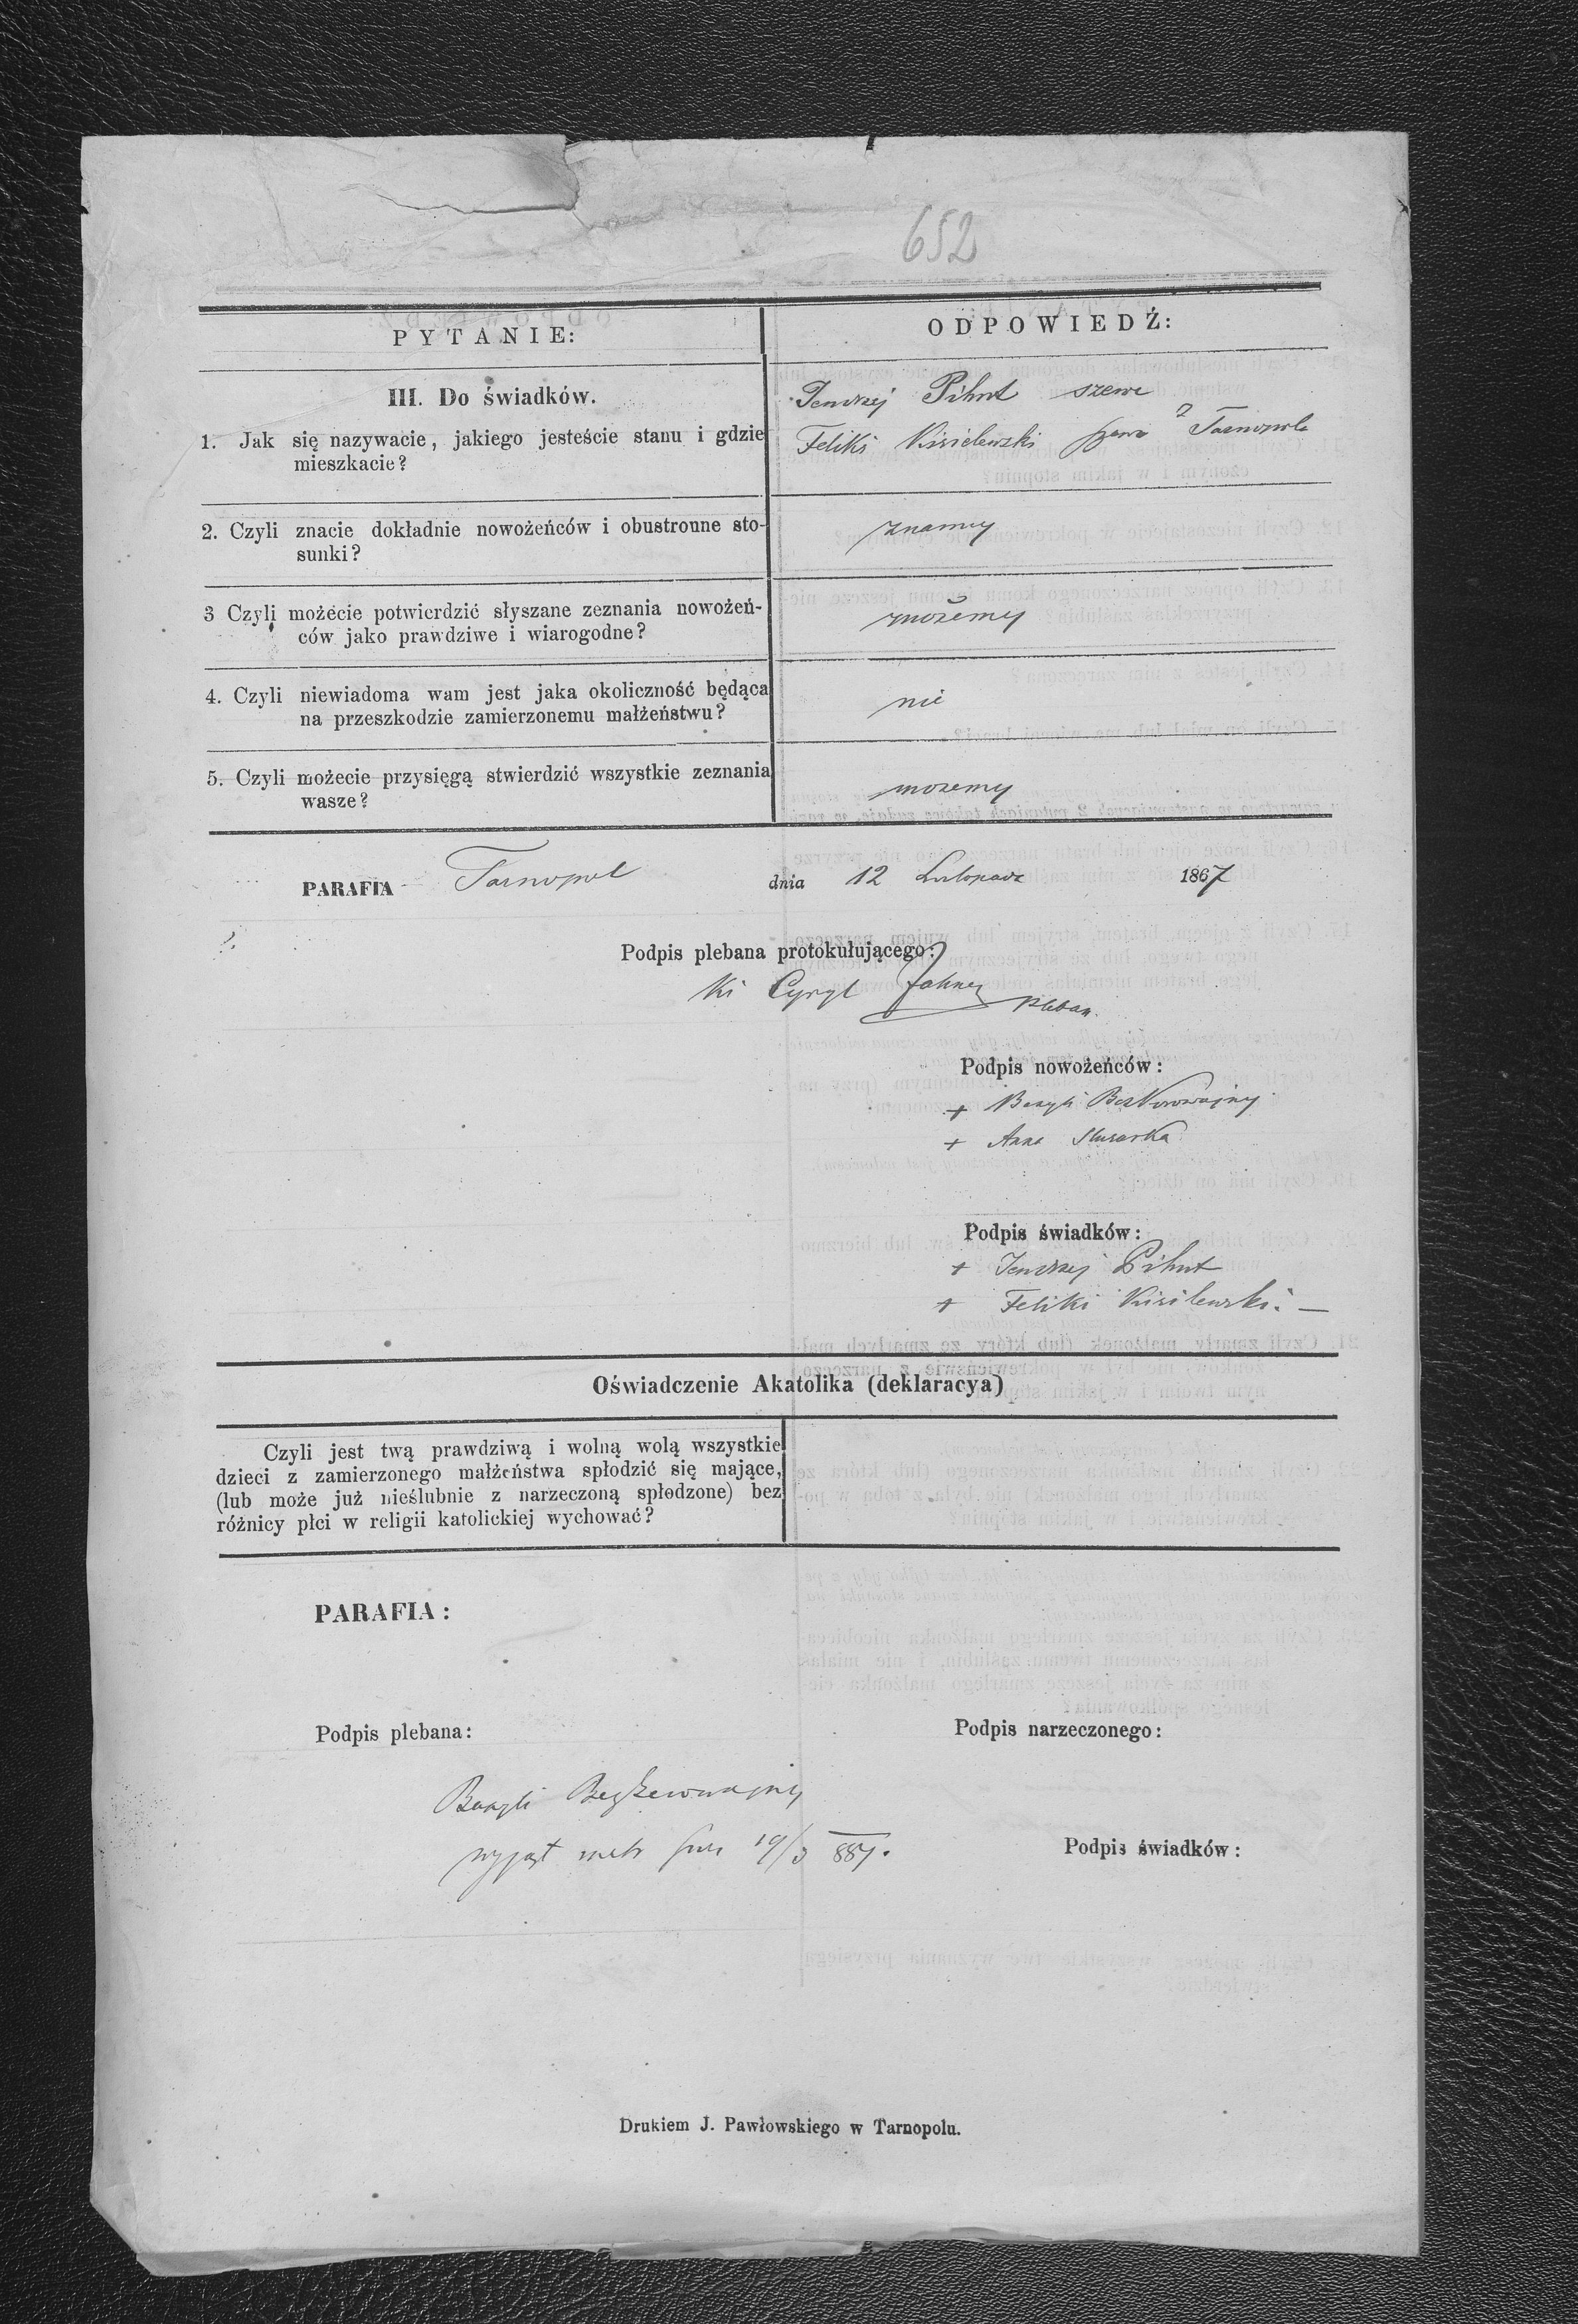 652
PYTANIE:
ODPOWIEDŹ:
III. Do świadków.
1. Jak się nazywacie, jakiego jesteście stanu i gdzie
mieszkacie?
Jendrzej Pihut szewc
Feliks Kisielewski szewc z Tarnopola
2. Czyli znacie dokładnie nowożeńców i obustronne sto-
sunki?
znamy
3 Czyli możecie potwierdzić słyszane zeznania nowożeń-
ców jako prawdziwe i wiarogodne?
możemy
4. Czyli niewiadoma wam jest jaka okoliczność będąca
na przeszkodzie zamierzonemu małżeństwu?
nie
5. Czyli możecie przysięgą stwierdzić wszystkie zeznania
wasze?
mozemy
PARAFIA Tarnopol dnia 12 Listopada 1867
Podpis plebana protokułującego:
Cyryl pleban.
Podpis nowożeńców:
+ Bazyli Bezkorowajny
+ Anna Slusarka
Podpis świadków:
+ Jendrzej Pihut
+ Feliks Kisilewski. —
Oświadczenie Akatolika (deklaracya)
Czyli jest twą prawdziwą i wolną wolą wszystkie
dzieci z zamierzonego małżeństwa spłodzić się mające,
(lub może już nieślubnie z narzeczoną spłodzone) bez
różnicy płci w religii katolickiej wychować?
PARAFIA:
Podpis plebana:
Podpis narzeczonego:
Bazyli
wyjął metr 19/3 887.
Podpis świadków:
Drukiem J. Pawłowskiego w Tarnopolu.